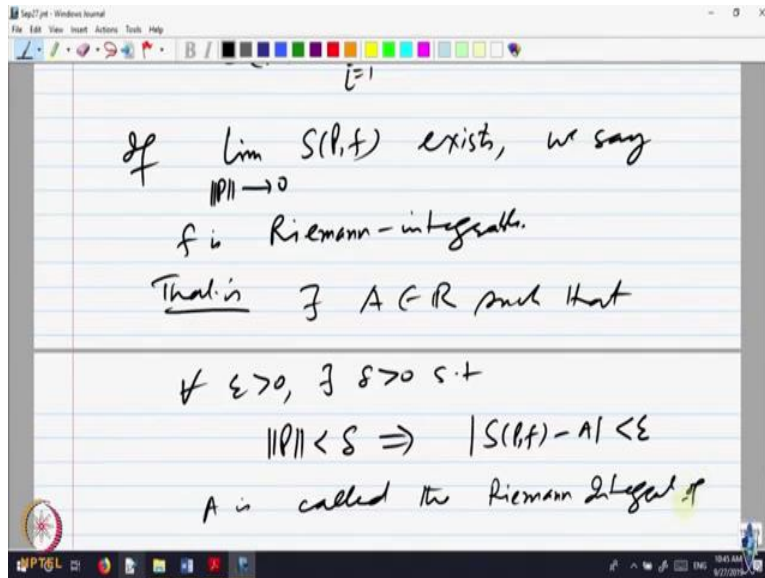 Sep27.jnt - Windows Journal
File Edit View Insert Actions Tools Help
i=1
If lim S(P,f) exists, we say
||P|| → 0
f is Riemann-integrable.
That is ∃ A ∈ R such that
∀ ε>0, ∃ δ>0 s.t
||P|| < δ ⇒ |S(P,f) - A| < ε
A is called the Riemann Integral of
NPTEL
ENG
10:45 AM
9/27/2019